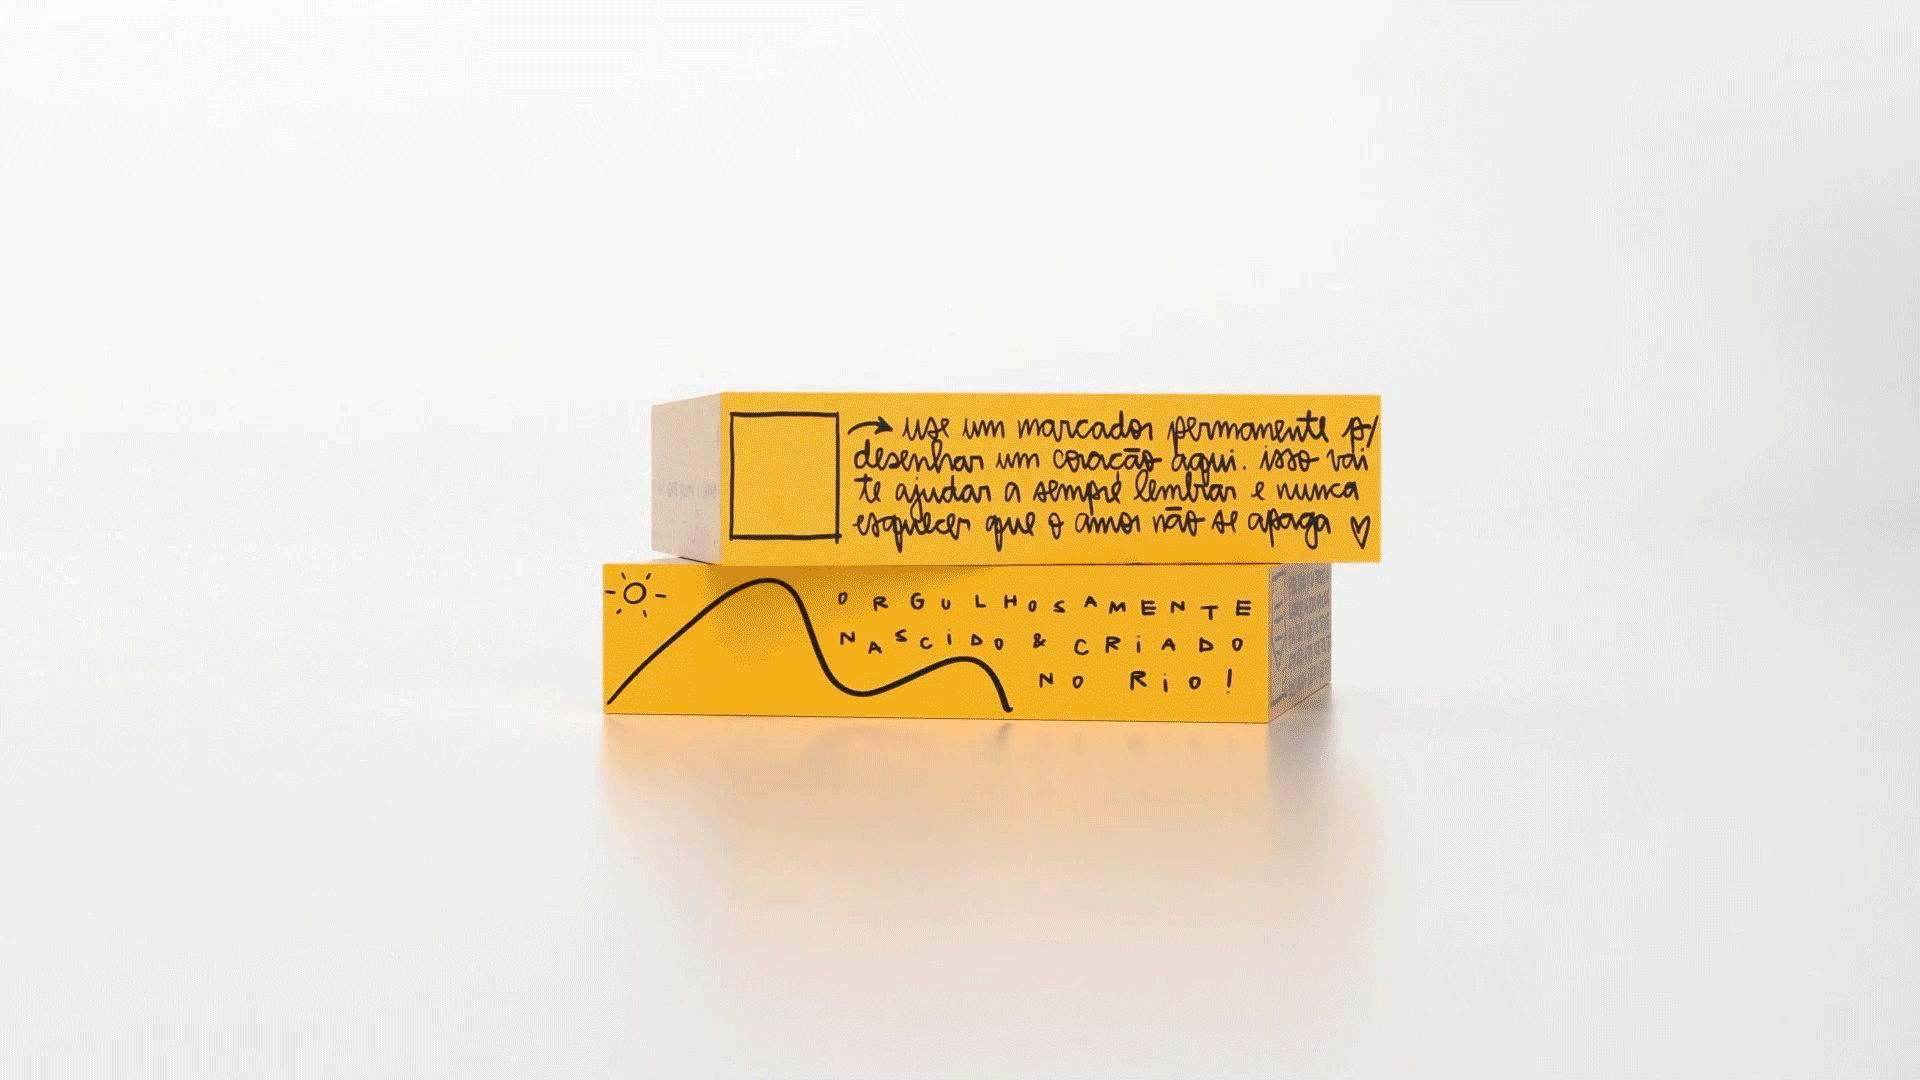 use um marcador permanente p/
desenhar um coração aqui. isso vai
te ajudar a sempre lembrar e nunca
esquecer que o amor não se apaga
ORGULHOSAMENTE
NASCIDO & CRIADO
NO RIO!